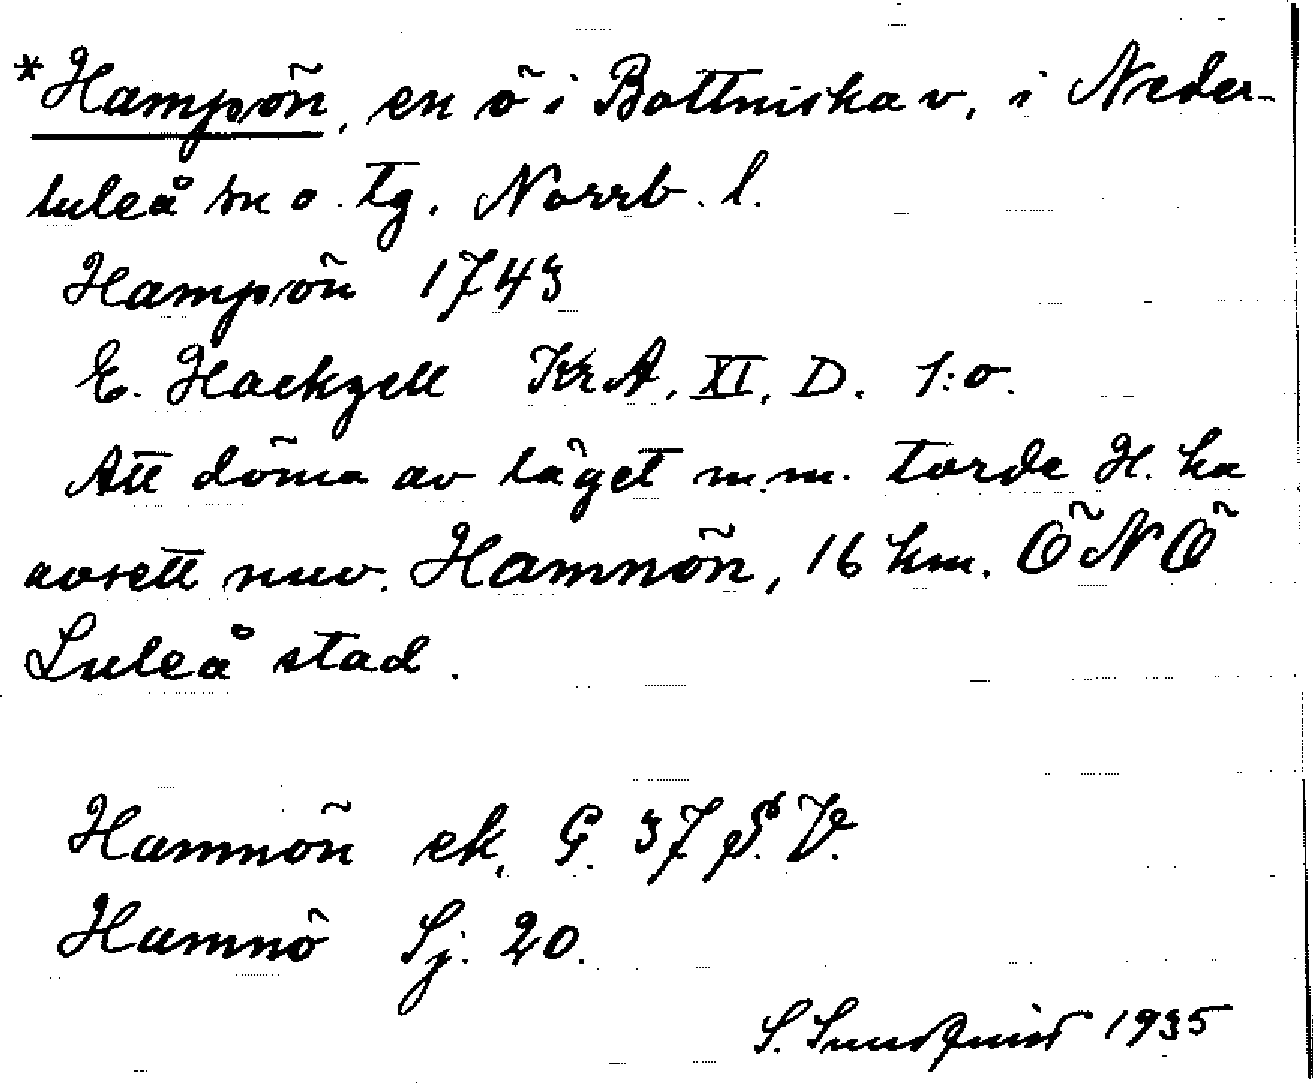 *Hampön, en ö i Bottniska v. i Neder-
luleå sn o. tg. Norrb. l.
Hampön 1743
E. Hackzell KrA, XI, D. 1:o.
Att döma av läget m.m. torde H. ha
avsett nuv. Hamnön, 16 km. ÖNÖ
Luleå stad.
Hamnön ek. G. 37 S.V.
Hamnö Sj. 20.
S. Sundquist 1935